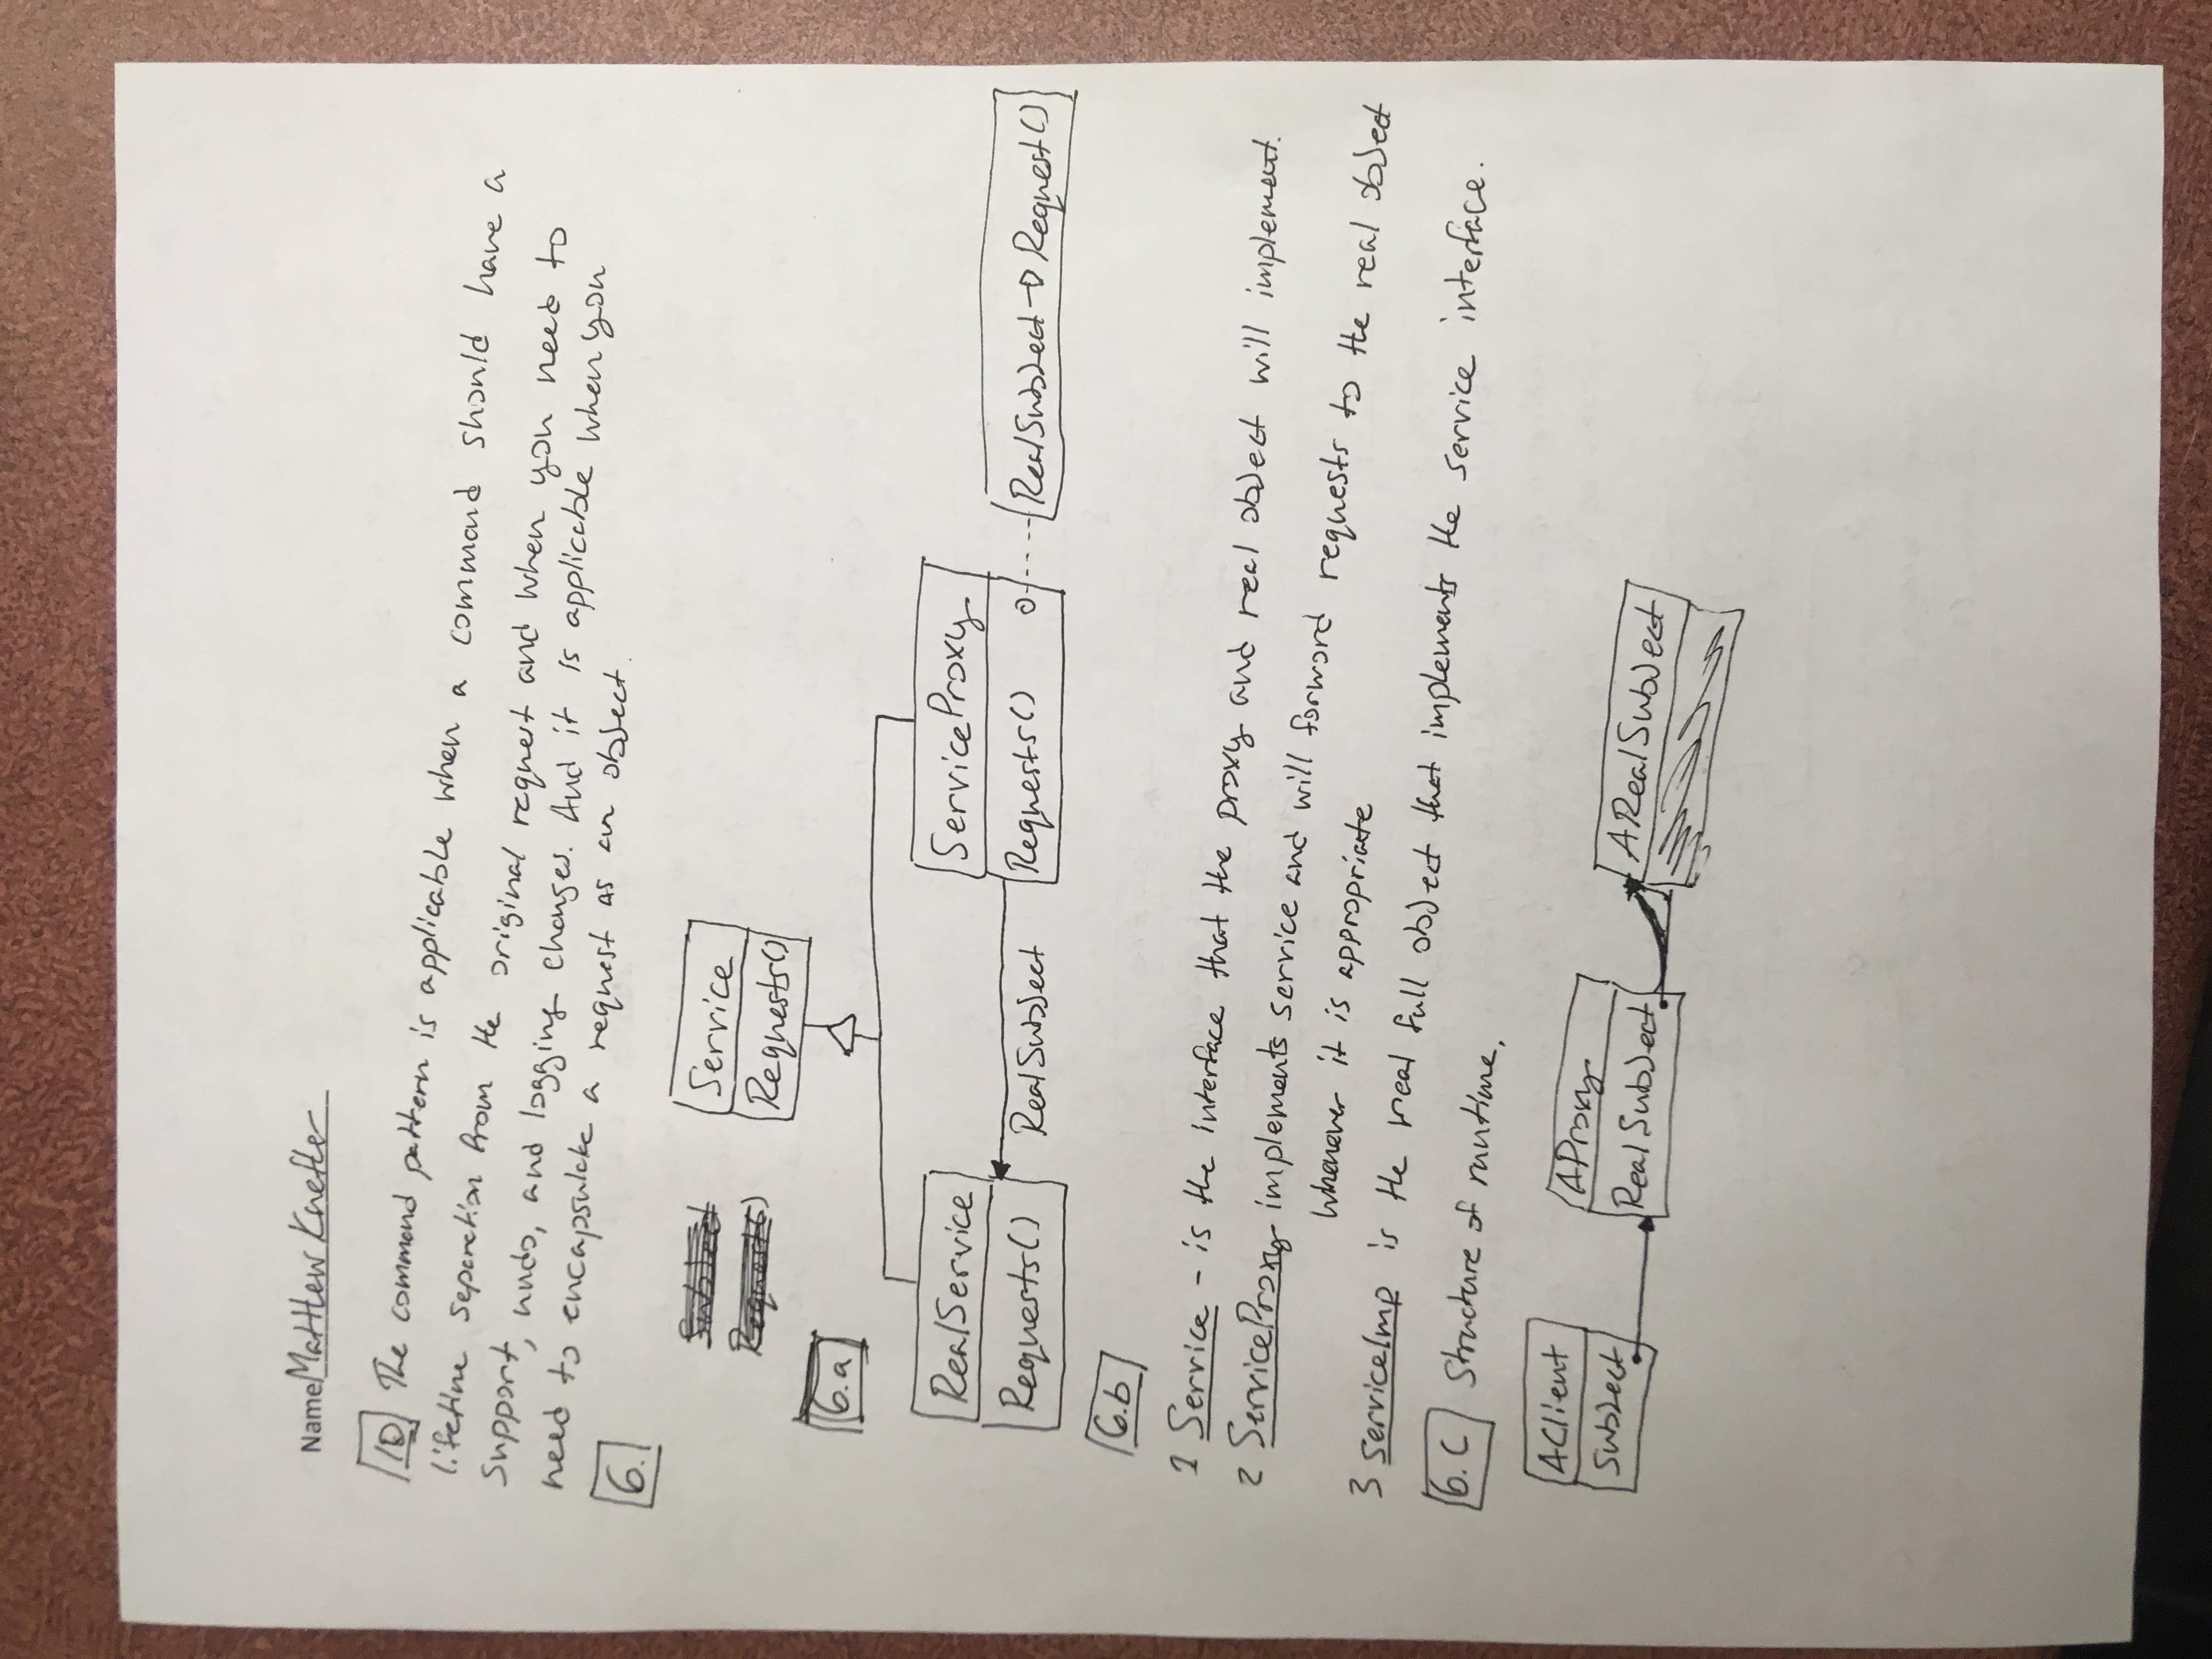 Name Matthew Knefler
D The command pattern is applicable when a command should have a
lifetime separation from the original request and when you need to
support, undo, and logging changes. And it is applicable when you
need to encapsulate a request as an object.
6.
Service
Requests()
6.a
RealService
Requests()
RealSubject
ServiceProxy
Requests()
RealSubject→Request()
6.b
1 Service - is the interface that the proxy and real object will implement.
2 ServiceProxy implements service and will forward requests to the real object
whenever it is appropriate
3 ServiceImp is the real full object that implements the service interface.
6.C Structure at runtime.
AClient
Subject
AProxy
RealSubject
ARealSubject